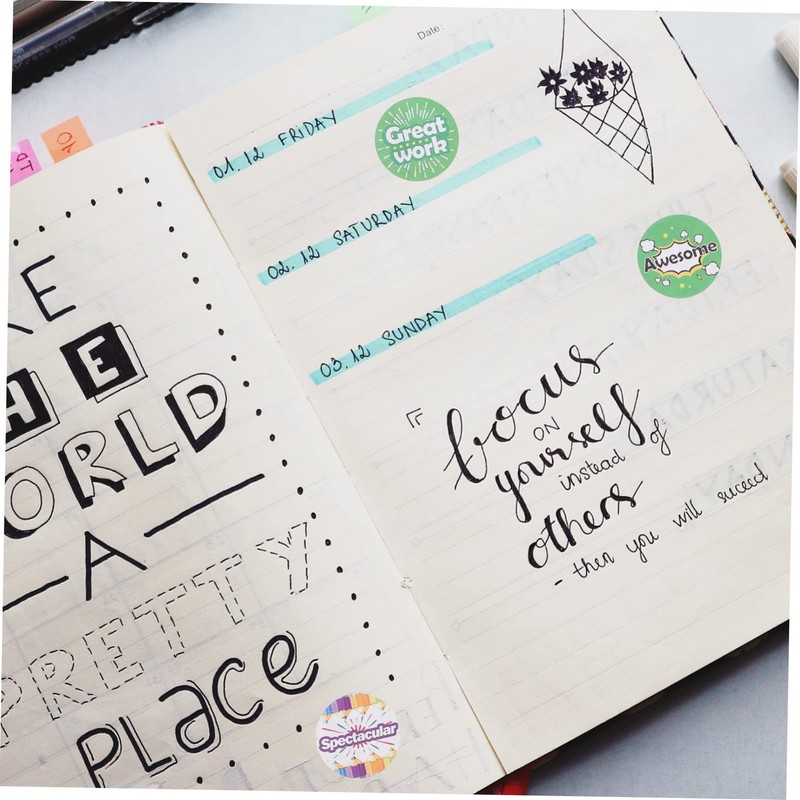 KE
HE
ORLD
A
PRETTY
PLacE
Spectacular
Date:
01.12 FRIDAY
Great
work
02.12 SATURDAY
Awesome
03.12 SUNDAY
focus
ON
yourself
instead of
others
- then you will suceed